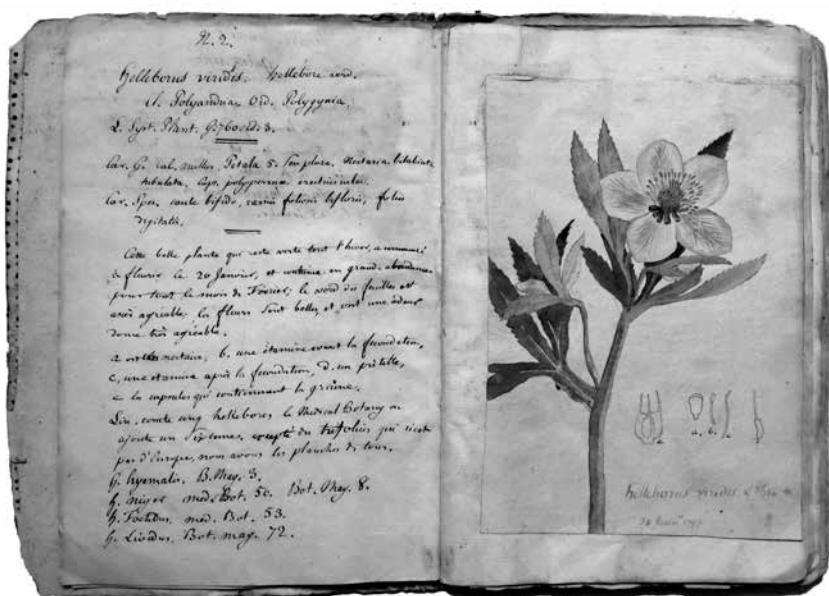 N. 2.
Helleborus virides. hellebore verd.
Cl. Polyandriae Ord. Polygynia.
L. Syst. Plant. G. 760
Car. G. Cal. nullus. Petala 5. seu plura. Nectaria bilabiata
tubulata. Caps. polyspermae erectiusculae.
Car. Spec. caule bifido, ramis foliosis bifloris, foliis
digitatis.
Cette belle plante qui reste verte tout l'hiver, a commencé
à fleurir le 20 Janvier, et continue en grande abondance
pour tout le mois de Fevrier; le verd des feuilles est
très agréable; les fleurs sont belles, et ont une odeur
douce très agréable.
a nectaire, b. une étamine avant la fecondation,
c, une etamine après la fecondation, d. un pistille,
e la capsules qui contiennent la graine.
Lin. compte cinq hellebores le Medical Botany en
ajoute un sixieme, excepté du trifolius qui n'est
pas d'Europe, nous avons les planches de tous.
H. hyemalis. B. Mag. 3.
H. niger med. Bot. 50. Bot. Mag. 8.
H. Foetidus, med. Bot. 53.
H. Lividus, Bot. mag. 72.
a. b. c.
helleborus virides. L.